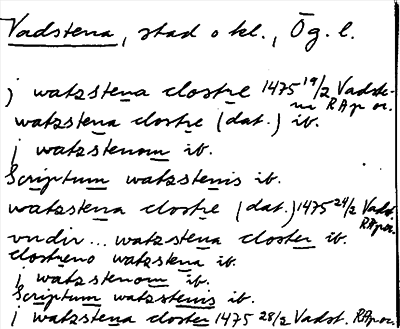 Vadstena, stad o kl., Ög. l.
j watzstena clostre 1475 19/2 Vadste-
ni RAp or.
watzstena clostre (dat.) ib.
j watzstenom ib.
Scriptum watzstenis ib.
watzstena clostre (dat.) 1475 24/2 Vadst.
RAp or.
vndir... watzstena closter ib.
clostreno watzstena ib.
j watzstenom ib.
Scriptum watzstenis ib.
j watzstena closter 1475 28/2 Vadst. RAp or.